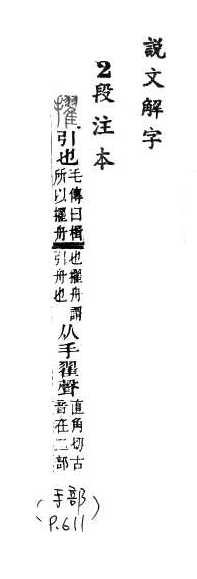 説文解字
2段注本
擢引也毛傳曰楫所以擢舟也擢舟謂引舟也从手翟聲直角切古音在二部
(手部
P.611)